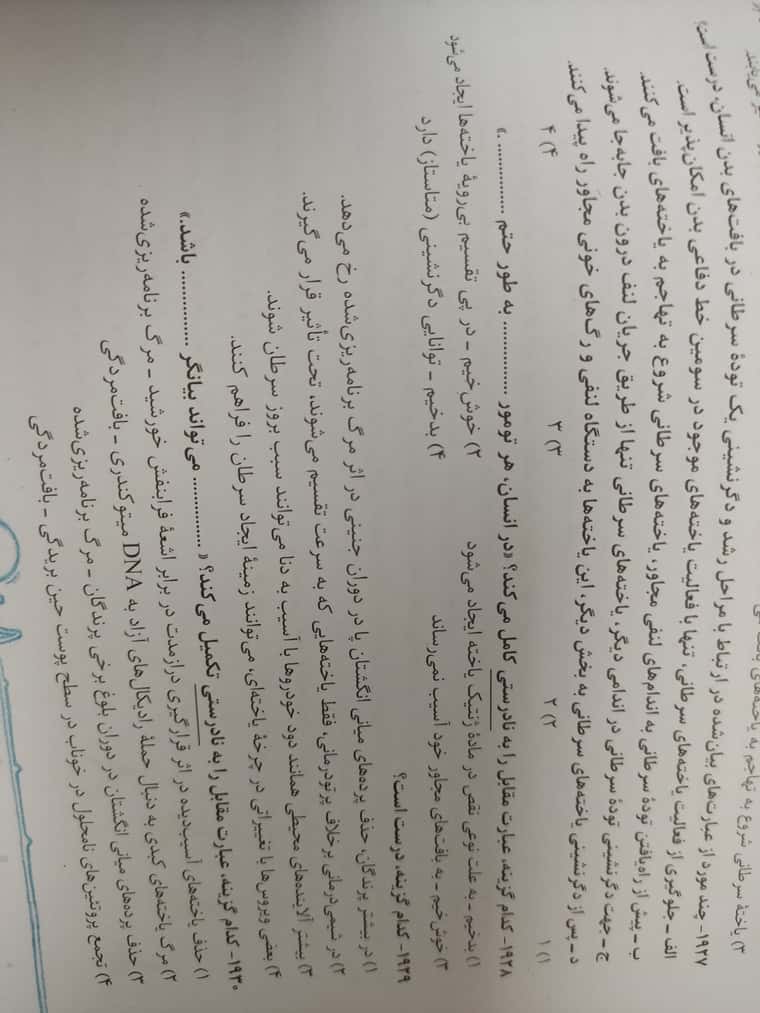 ۳) یاختهٔ سرطانی شروع به تهاجم به یاخته‌های بافت می
۱۹۲۷- چند مورد از عبارت‌های بیان‌شده در ارتباط با مراحل رشد و دگرنشینی یک تودهٔ سرطانی در بافت‌های بدن انسان، درست است؟
الف ـ جلوگیری از فعالیت یاخته‌های سرطانی، تنها با فعالیت یاخته‌های موجود در سومین خط دفاعی بدن امکان‌پذیر است.
ب ـ پیش از راه‌یافتن تودهٔ سرطانی به اندام‌های لنفی مجاور، یاخته‌های سرطانی شروع به تهاجم به یاخته‌های بافت می‌کنند.
ج ـ جهت دگرنشینی تودهٔ سرطانی در اندامی دیگر، یاخته‌های سرطانی تنها از طریق جریان لنف درون بدن جابه‌جا می‌شوند.
د ـ پس از دگرنشینی یاخته‌های سرطانی به بخش دیگر، این یاخته‌ها به دستگاه لنفی و رگ‌های خونی مجاور راه پیدا می‌کنند.
۱) ۱ ۲) ۲ ۳) ۳ ۴) ۴
۱۹۲۸- کدام گزینه، عبارت مقابل را به نادرستی کامل می‌کند؟ «در انسان، هر تومور ............... به طور حتم ............... .»
۱) بدخیم ـ به علت نوعی نقص در مادهٔ ژنتیک یاخته ایجاد می‌شود ۲) خوش‌خیم ـ در پی تقسیم بی‌رویهٔ یاخته‌ها ایجاد می‌شود
۳) خوش‌خیم ـ به بافت‌های مجاور خود آسیب نمی‌رساند ۴) بدخیم ـ توانایی دگرنشینی (متاستاز) دارد
۱۹۲۹- کدام گزینه، درست است؟
۱) در بیشتر پرندگان، حذف پرده‌های میانی انگشتان پا در دوران جنینی در اثر مرگ برنامه‌ریزی‌شده رخ می‌دهد.
۲) در شیمی‌درمانی برخلاف پرتودرمانی، فقط یاخته‌هایی که به سرعت تقسیم می‌شوند، تحت تأثیر قرار می‌گیرند.
۳) بیشتر آلاینده‌های محیطی همانند دود خودروها با آسیب به دنا می‌توانند سبب بروز سرطان شوند.
۴) بعضی ویروس‌ها با تغییراتی در چرخهٔ یاخته‌ای، می‌توانند زمینهٔ ایجاد سرطان را فراهم کنند.
۱۹۳۰- کدام گزینه، عبارت مقابل را به نادرستی تکمیل می‌کند؟ « ............... می‌تواند بیانگر ............... باشد.»
۱) حذف یاخته‌های آسیب‌دیده در اثر قرارگیری درازمدت در برابر اشعهٔ فرابنفش خورشید ـ مرگ برنامه‌ریزی‌شده
۲) مرگ یاخته‌های کبدی به دنبال حملهٔ رادیکال‌های آزاد به DNA میتوکندری ـ بافت‌مردگی
۳) حذف پرده‌های میانی انگشتان در دوران بلوغ برخی پرندگان ـ مرگ برنامه‌ریزی‌شده
۴) تجمع پروتئین‌های نامحلول در خوناب در سطح پوست حین بریدگی ـ بافت‌مردگی